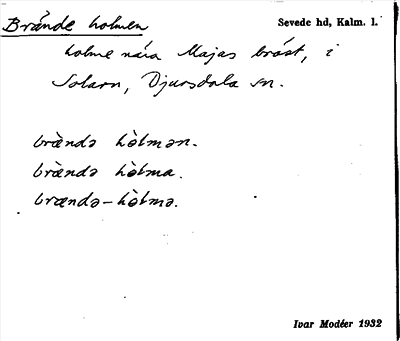 Brände holmen
Sevede hd, Kalm. l.
holme nära Majas bråst, i
Solarn, Djursdala sn.
bràndə hòlmən.
bràndə hòlma.
brændə-hòlmə.
Ivar Modéer 1932